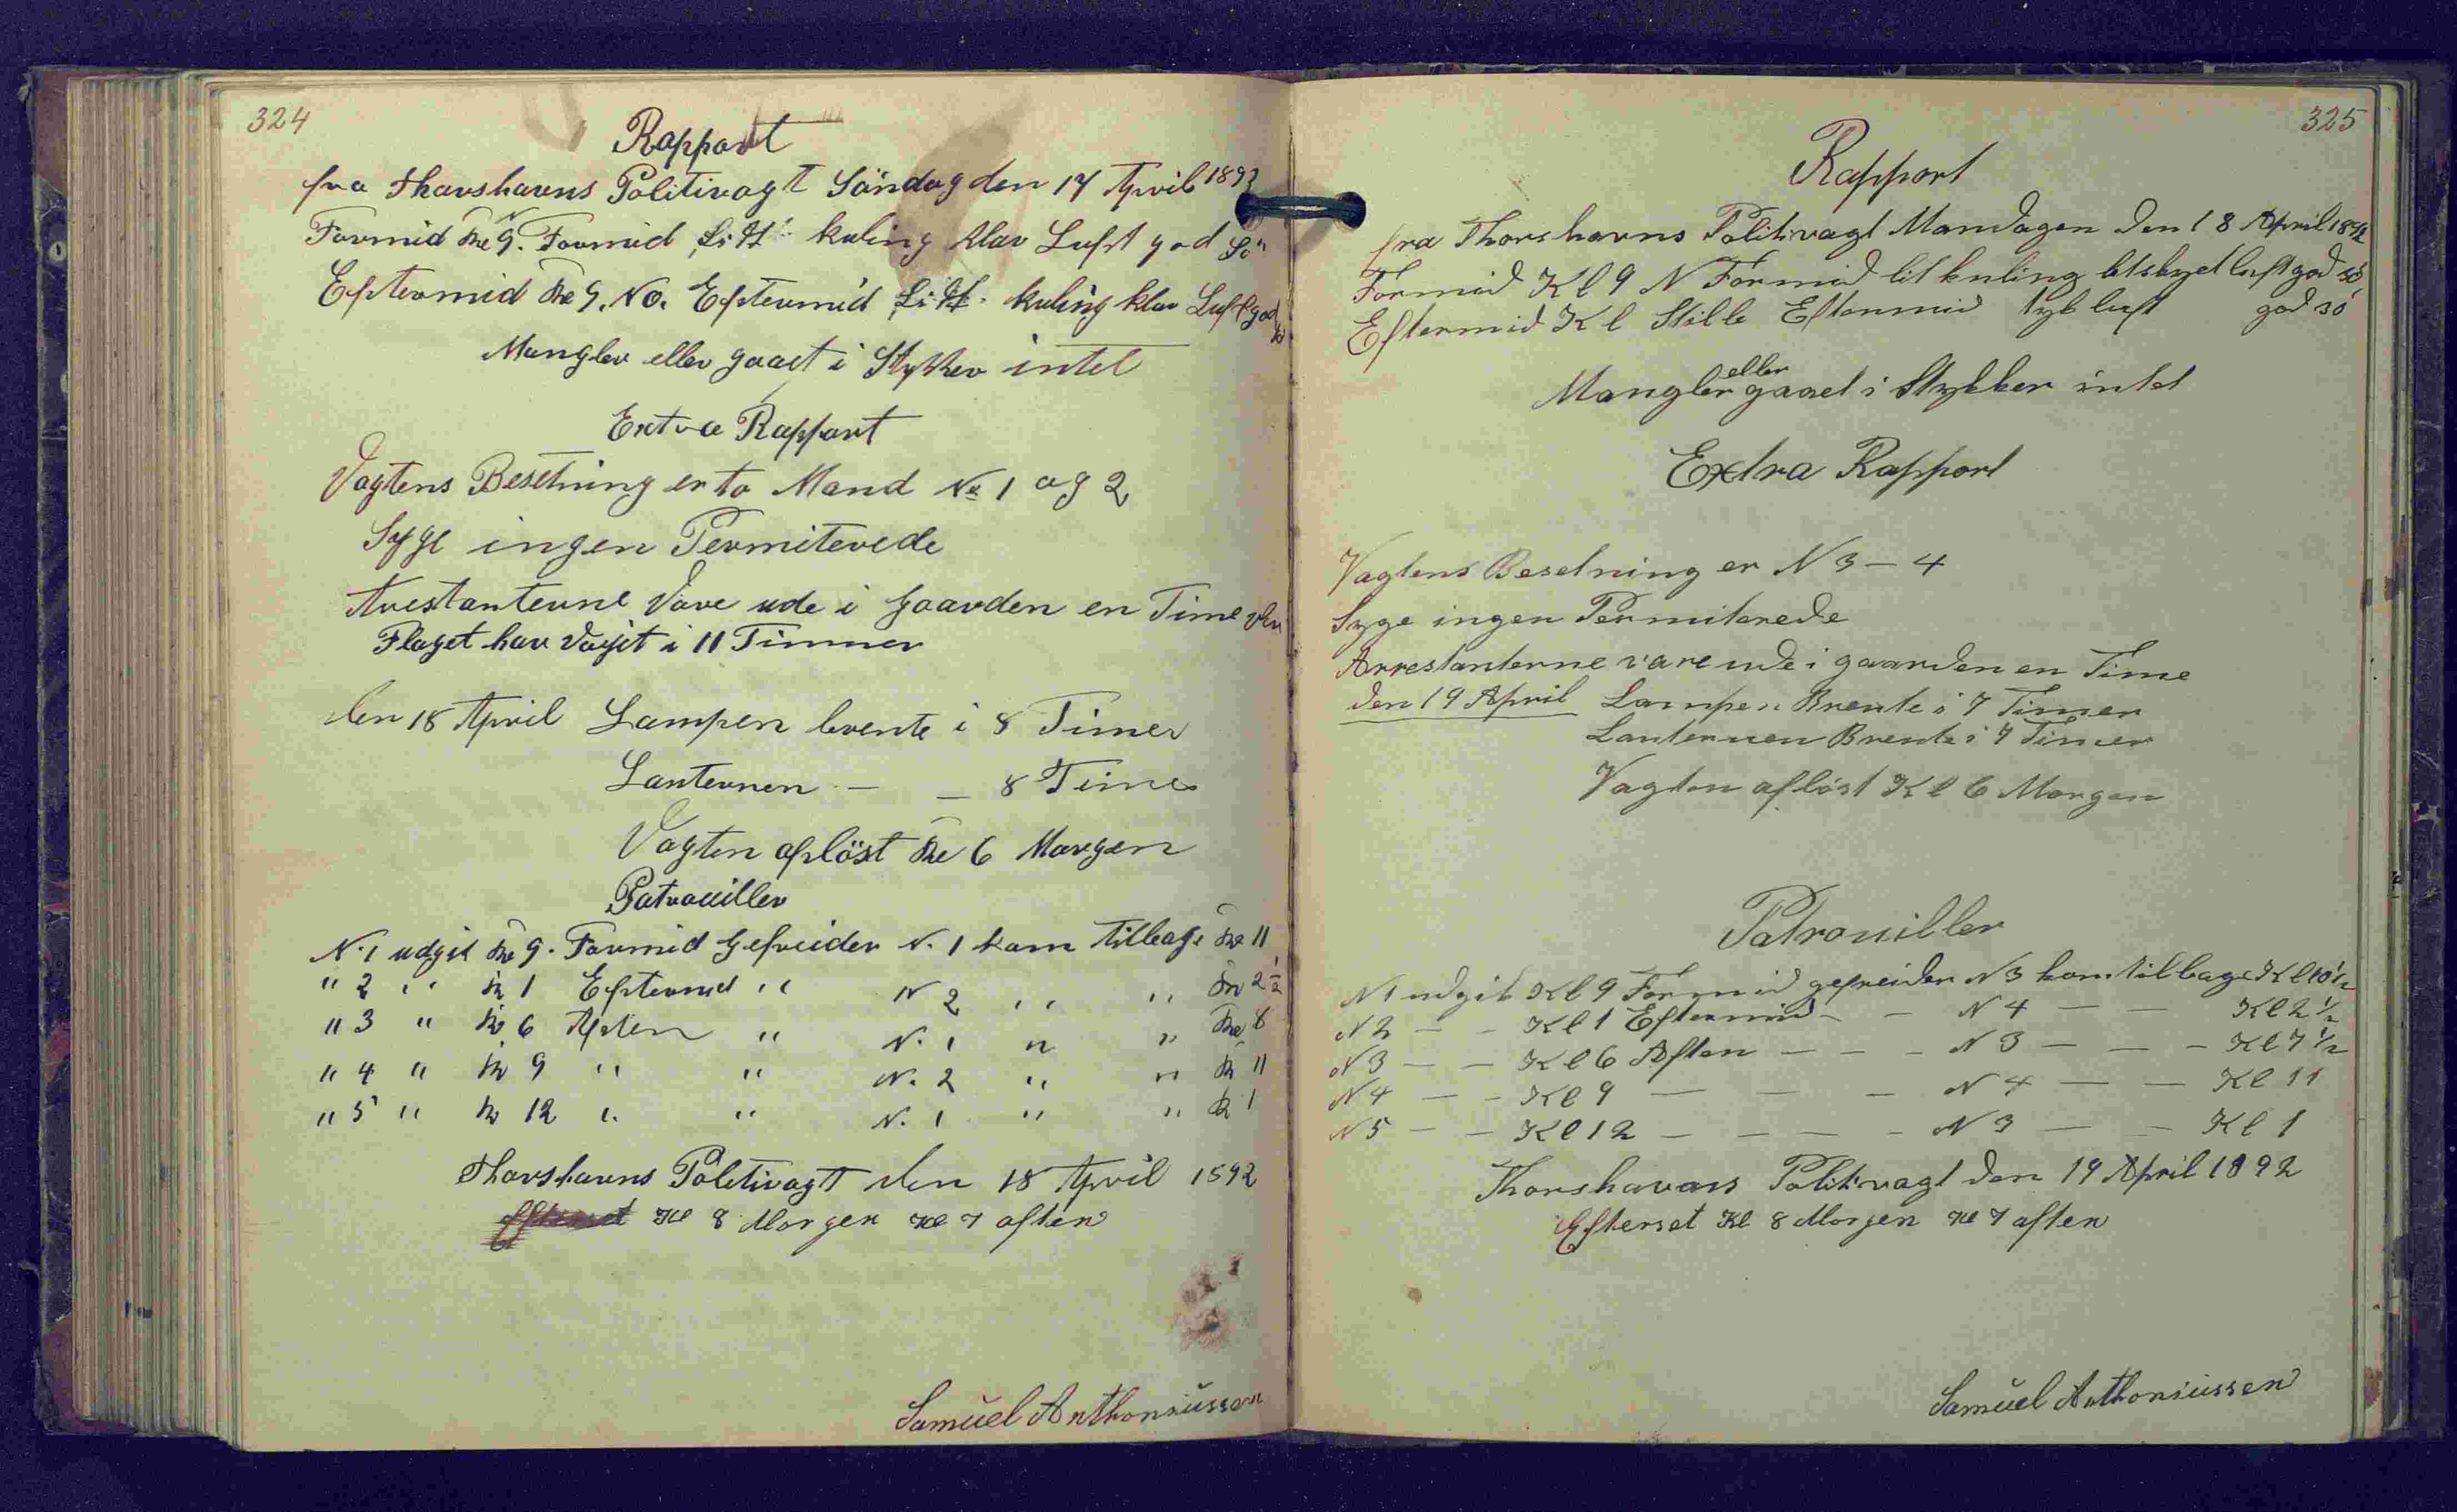 324
Rapport
fra Thorshavns Politivagt Söndag den 17 April 1892
Formid Kl 9. N Formid Lit kuling klar Luft god Sö
Eftermid Kl 9. NO. Eftermid Lit kuling klar Luft god Sö
Mangler eller gaaet i Stykker intet
Extra Rapport
Vagtens Besetning er to Mand No 1 og 2
Syge ingen Permiterede
Arestanterne Vare ude i Gaarden en Time
Flaget har Vajet i 11 Timmer
den 18 April Lampen brente i 8 Timer
Lanternen — — 8 Time
Vagten aflöst Kl 6 Morgen
Patrouiller
N. 1 udgik Kl 9. Formid Gefreider N. 1 kom tilbage Kl 11
" 2 " Kl 1 Eftermid " N 2 " " Kl 2 1/2
" 3 " Kl 6 Aften " N. 1 " " Kl 8
" 4 " Kl 9 " " N. 2 " " Kl 11
" 5 " Kl 12 " " N. 1 " " Kl 1
Thorshavns Politivagt den 18 April 1892
Efterset Kl 8 Morgen Kl 7 aften
Samuel Anthoniussen
325
Rapport
fra Thorshavns Politivagt Mandagen den 18 April 1892
Formid Kl 9 N Formid lit kuling letskyet luft god sö
Eftermid Kl Stille Eftermid tyk luft god sö
Mangler eller gaaet i Stykker intet
Extra Rapport
Vagtens Besetning er N 3 – 4
Syge ingen Permiterede
Arrestanterne vare ude i gaarden en Time
den 19 April Lampen Brente i 7 Timer
Lanternen Brente i 7 Timer
Vagten aflöst Kl 6 Morgen
Patrouiller
N 1 udgik Kl 9 Formid gefreider N 3 kom tilbage Kl 10 1/2
N 2 — — Kl 1 Eftermid — — N 4 — — Kl 2 1/2
N 3 — — Kl 6 Aften — — — N 3 — — — Kl 7 1/2
N 4 — — Kl 9 — — — N 4 — — Kl 11
N 5 — — Kl 12 — — — — N 3 — — Kl 1
Thorshavns Politivagt den 19 April 1892
Efterset Kl 8 Morgen Kl 7 aften
Samuel Anthoniussen